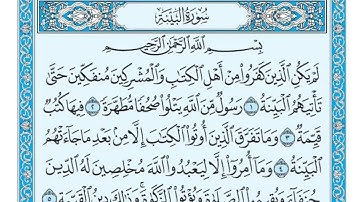 سُورَةُ الْبَيِّنَةِ
بِسْمِ اللَّهِ الرَّحْمَٰنِ الرَّحِيمِ
لَمْ يَكُنِ الَّذِينَ كَفَرُوا مِنْ أَهْلِ الْكِتَابِ وَالْمُشْرِكِينَ مُنفَكِّينَ حَتَّىٰ
تَأْتِيَهُمُ الْبَيِّنَةُ ١ رَسُولٌ مِّنَ اللَّهِ يَتْلُوا صُحُفًا مُّطَهَّرَةً ٢ فِيهَا كُتُبٌ
قَيِّمَةٌ ٣ وَمَا تَفَرَّقَ الَّذِينَ أُوتُوا الْكِتَابَ إِلَّا مِن بَعْدِ مَا جَاءَتْهُمُ
الْبَيِّنَةُ ٤ وَمَا أُمِرُوا إِلَّا لِيَعْبُدُوا اللَّهَ مُخْلِصِينَ لَهُ الدِّينَ
حُنَفَاءَ وَيُقِيمُوا الصَّلَاةَ وَيُؤْتُوا الزَّكَاةَ وَذَٰلِكَ دِينُ الْقَيِّمَةِ ٥